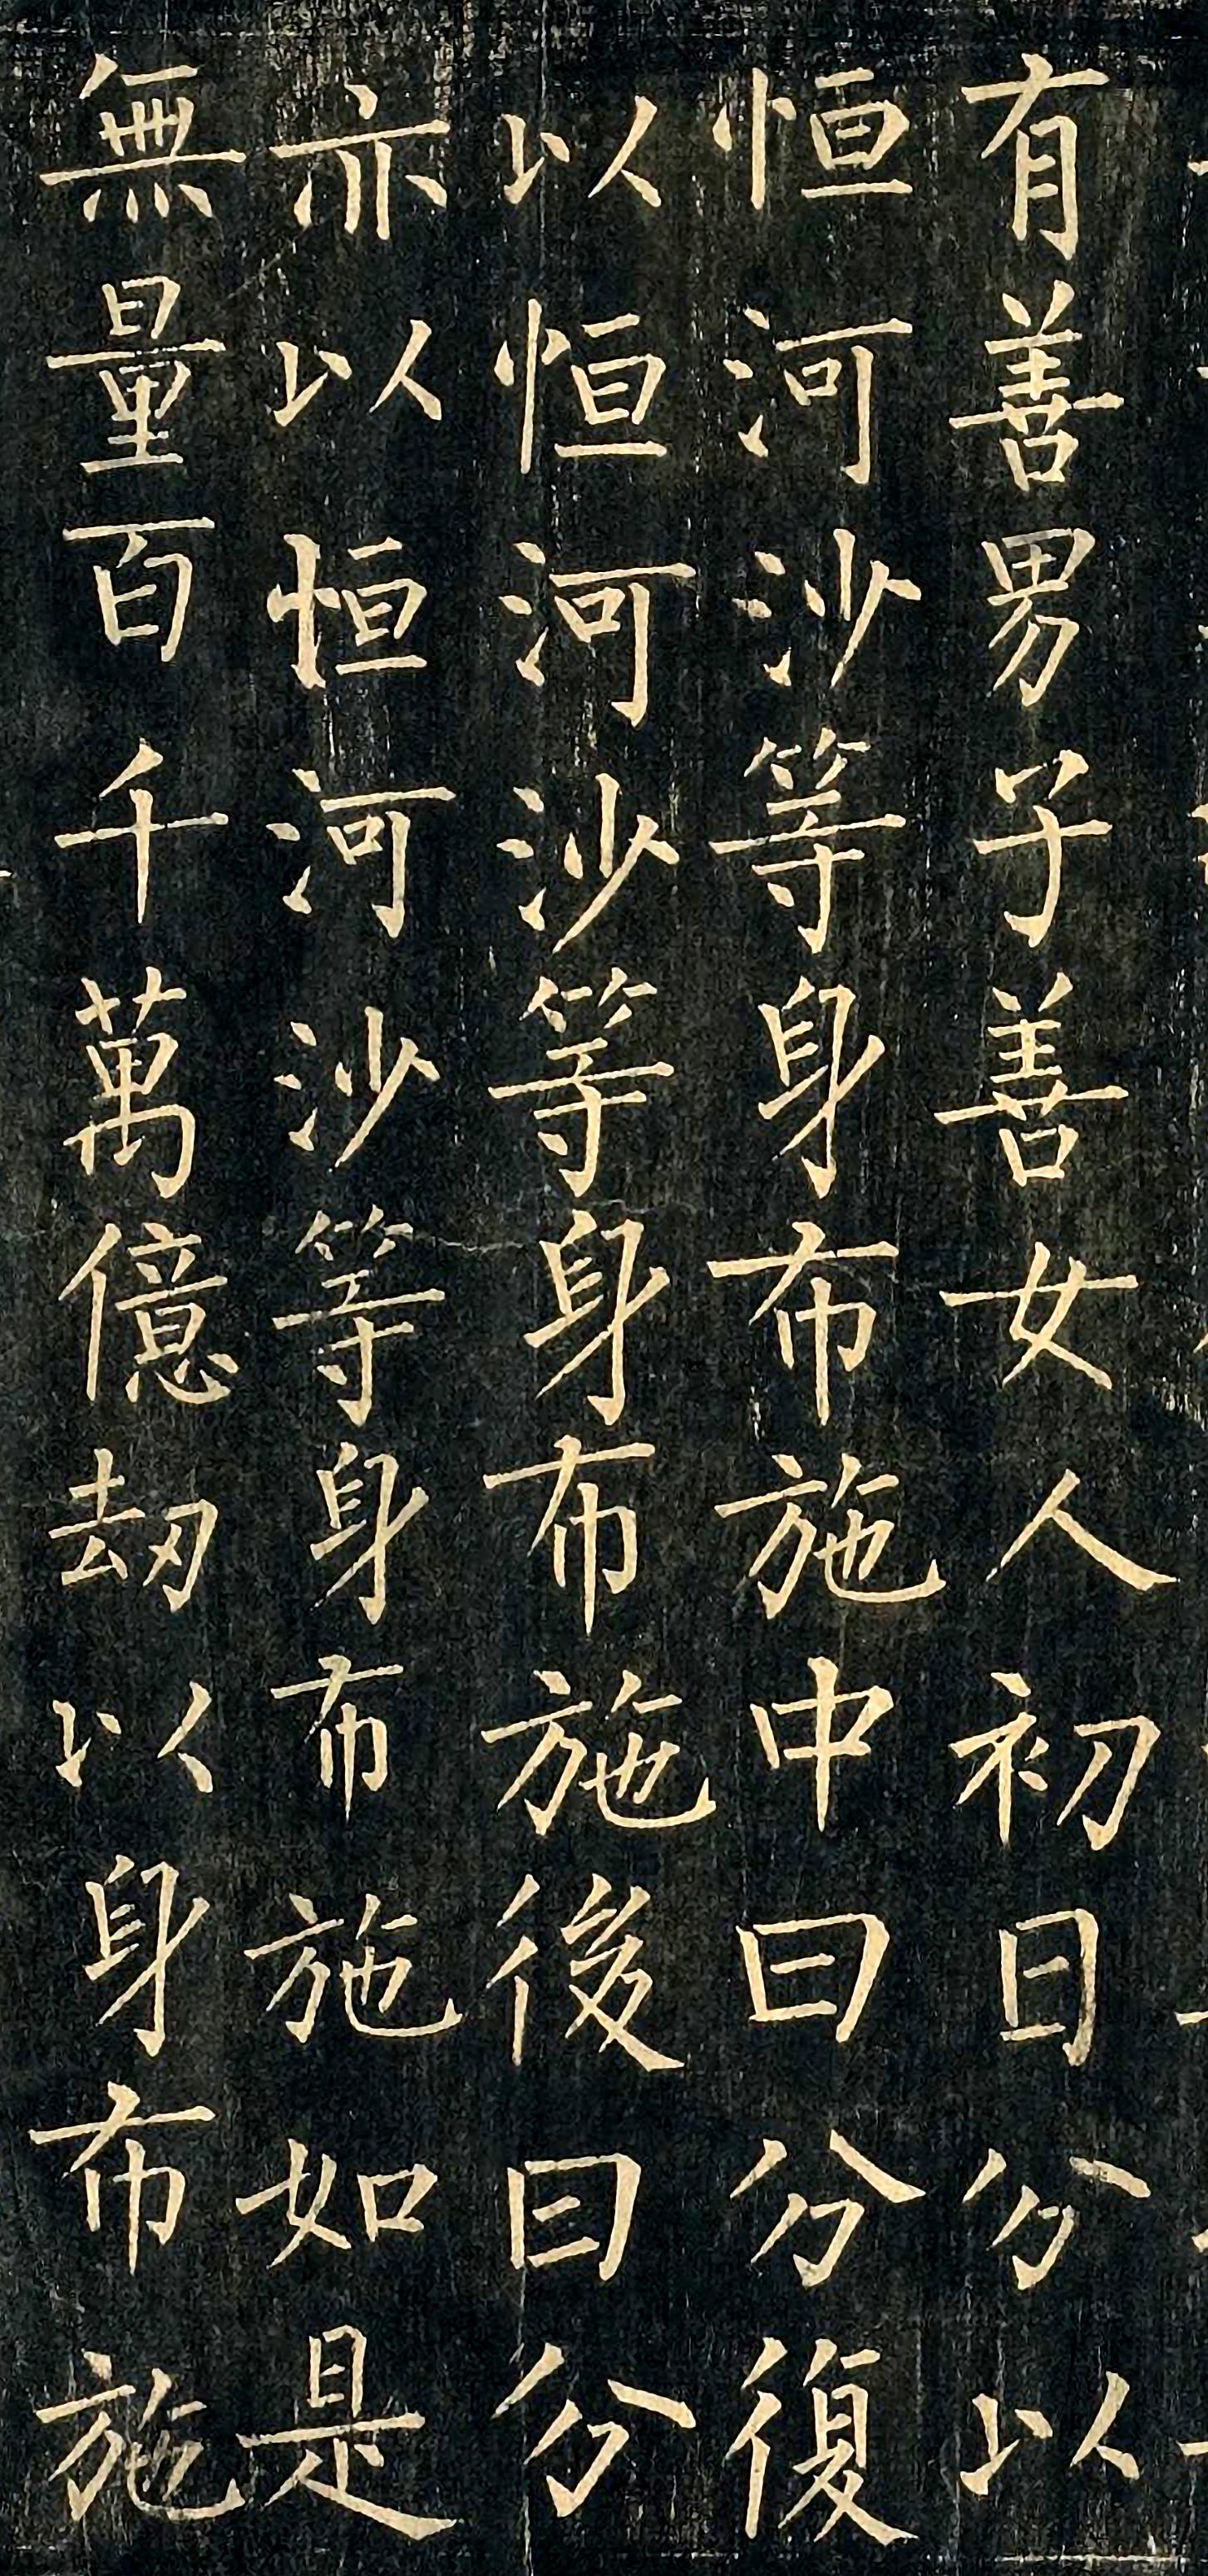 有善男子善女人初日分以
恒河沙等身布施中日分復
以恒河沙等身布施後日分
亦以恒河沙等身布施如是
無量百千萬億劫以身布施